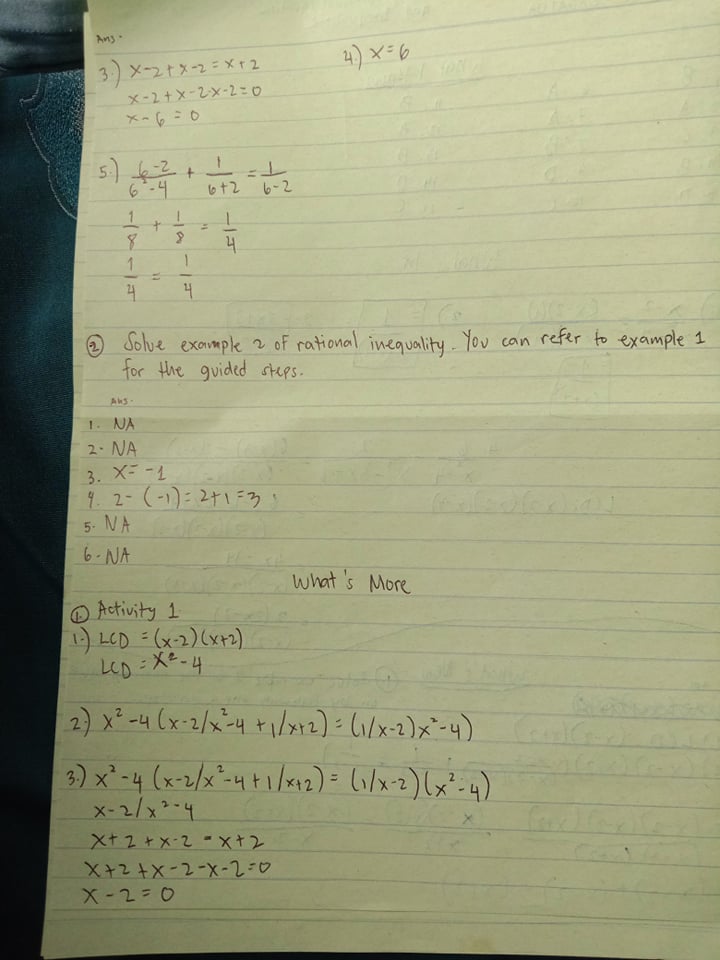 Ans.
3.) x-2+x-2=x+2
x-2+x-2-x-2=0
x-6=0
4.) x=6
5.) 6-2/6²-4 + 1/6+2 = 1/6-2
1/8 + 1/8 = 1/4
1/4 = 1/4
② Solve example 2 of rational inequality. You can refer to example 1
for the guided steps.
Ans.
1. NA
2. NA
3. x=-1
4. 2-(-1)=2+1=3
5. NA
6. NA
What's More
①. Activity 1
1.) LCD = (x-2)(x+2)
LCD = x²-4
2.) x²-4(x-2/x²-4+1/x+2)=(1/x-2)x²-4)
3.) x²-4(x-2/x²-4+1/x+2)=(1/x-2)(x²-4)
x-2/x²-4
x+2+x-2=x+2
x+2+x-2-x-2=0
x-2=0